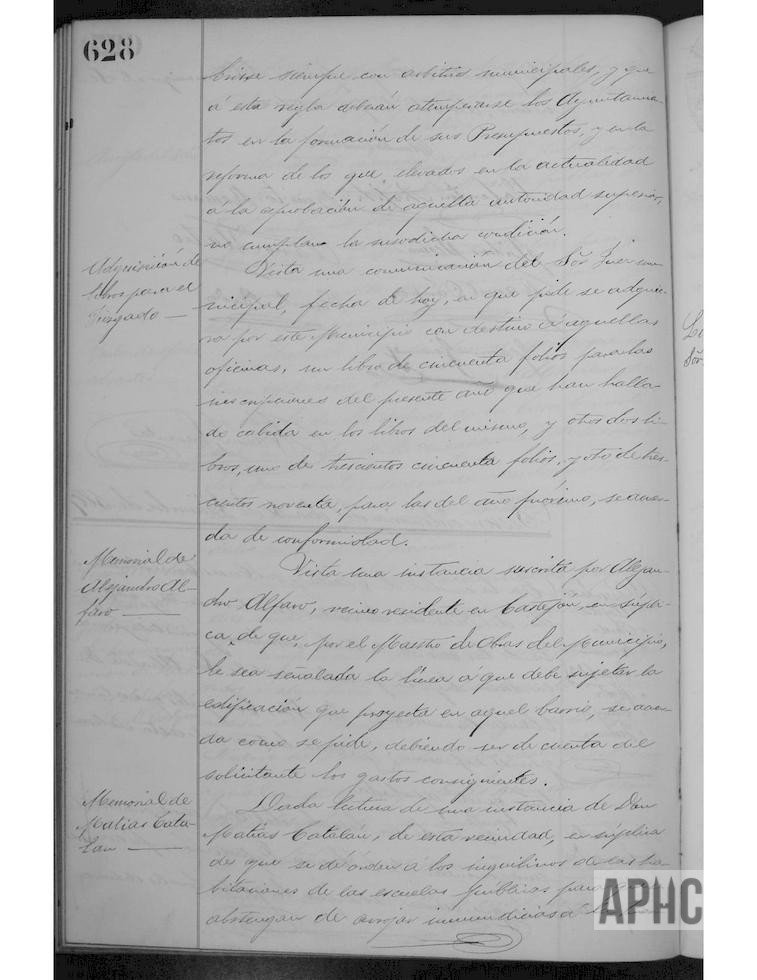 628
brirse siempre con arbitrios municipales, y que
á esta regla deberán atemperarse los Ayuntamien-
tos en la formación de sus Presupuestos, y en la
reforma de los que, elevados en la actualidad
á la aprobación de aquella autoridad superior,
no cumplan la susodicha condición.
Adquisición de
libros para el
Juzgado —
Vista una comunicación del Sõr Juez mu-
nicipal, fecha de hoy, en que pide se adquie-
ra por este Municipio con destino á aquellas
oficinas, un libro de cincuenta folios para las
inscripciones del presente año que han halla-
do cabida en los libros del mismo, y otros dos li-
bros, uno de trescientos cincuenta folios, y otro de tres-
cientos noventa, para las del año próximo, se acuer-
da de conformidad.
Memorial de
Alejandro Al-
faro —
Vista una instancia suscrita por Alejan-
dro Alfaro, vecino residente en Castejón, en súpli-
ca de que, por el Maestro de Obras del Municipio,
le sea señalada la línea á que debe sujetar la
edificación que proyecta en aquel barrio, se acuer-
da como se pide, debiendo ser de cuenta del
solicitante los gastos consiguientes.
Memorial de
Matías Cata-
lan —
Dada lectura de una instancia de Don
Matías Catalán, de esta vecindad, en súplica
de que se dé orden á los inquilinos de las ha-
bitaciones de las escuelas públicas para
abstengan de arrojar inmundicias á
APHC